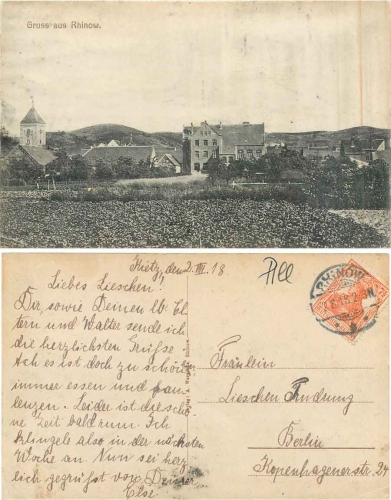 Gruss aus Rhinow.
Kietz, den 2. III. 18
Liebes Lieschen!
Dir, sowie Deinen lb. El-
tern und Walter sende ich
die herzlichsten Grüße.
Ach es ist doch zu schön
immer essen und pau-
lenzen. Leider ist die schö-
ne Zeit bald rum. Ich
klingele also in der nächsten
Woche an. Nun sei herz-
lich gegrüßt von Deiner
Else.
RHINOW
Fräulein
Lieschen
Berlin
Kopenhagenerstr. 24